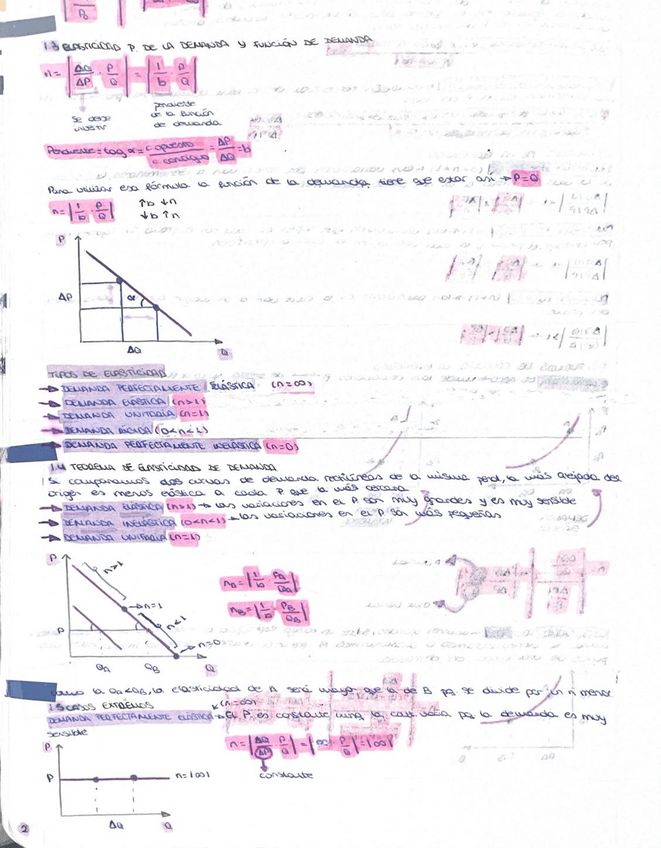 1.3 ELASTICIDAD P. DE LA DEMANDA Y FUNCIÓN DE DEMANDA
n = | ΔQ/ΔP · P/Q | = | 1/b · P/Q |
Se debe invertir
pendiente de la función de demanda
Pendiente = tag α = c opuesto / c contiguo = ΔP/ΔQ = b
Para utilizar esa fórmula la función de la demanda tiene que estar así → P=Q
n = | 1/b · P/Q | ↑b ↓n
↓b ↑n
P
ΔP
α
ΔQ
Q
TIPOS DE ELASTICIDAD
→ DEMANDA PERFECTAMENTE ELÁSTICA (n=∞)
→ DEMANDA ELÁSTICA (n>1)
→ DEMANDA UNITARIA (n=1)
→ DEMANDA RÍGIDA (0<n<1)
→ DEMANDA PERFECTAMENTE INELÁSTICA (n=0)
1.4 TEOREMA DE ELASTICIDAD DE DEMANDA
Si comparamos dos curvas de demanda rectilíneas de la misma pend, la más alejada del
origen es menos elástica a cada P que la más cercana
→ DEMANDA ELÁSTICA (n>1) → las variaciones en el P son muy grandes y es muy sensible
→ DEMANDA INELÁSTICA (0<n<1) → las variaciones en el P son más pequeñas
→ DEMANDA UNITARIA (n=1)
P
n>1
n=1
n<1
n=0
P
QA QB Q
nA = | 1/b · PA/QA |
nB = | 1/b · PB/QB |
como la QA<QB, la elasticidad de A será mayor que la de B pq se divide por un n menor
1.5 CASOS EXTREMOS
(n=∞)
DEMANDA PERFECTAMENTE ELÁSTICA → El P, es constante cuando la cant varía pq la demanda es muy
sensible
n = | ΔQ/ΔP · P/Q | = | ∞ · P/Q | = |∞|
constante
P
P
n=|∞|
ΔQ Q
2